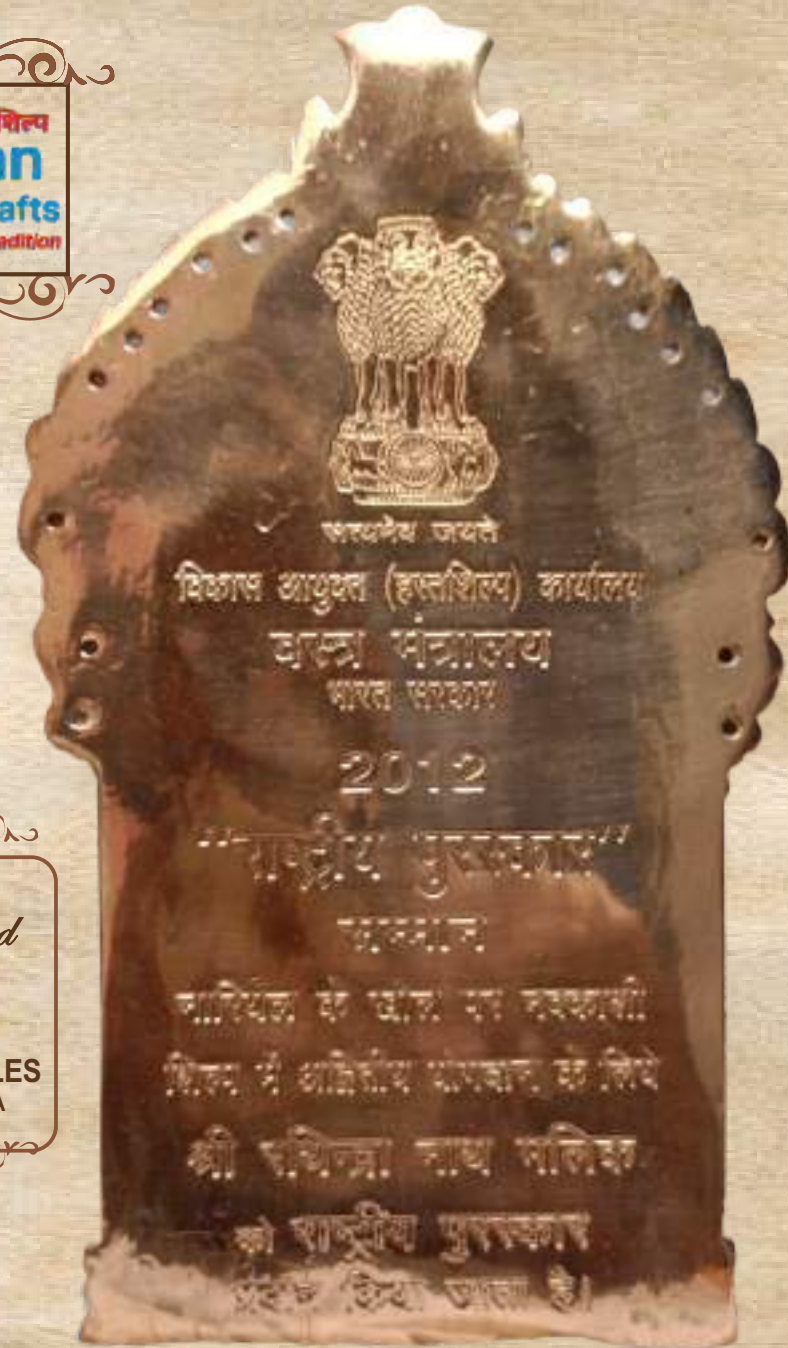 शिल्प
an
afts
adition
सत्यमेव जयते
विकास आयुक्त (हस्तशिल्प) कार्यालय
वस्त्र मंत्रालय
भारत सरकार
2012
"राष्ट्रीय पुरस्कार"
सम्मान
नारियल के खोल पर नक्काशी
शिल्प में अद्वितीय योगदान के लिये
श्री रथिन्द्रा नाथ मलिक
को राष्ट्रीय पुरस्कार
प्रदान किया जाता है।
d
LES
A